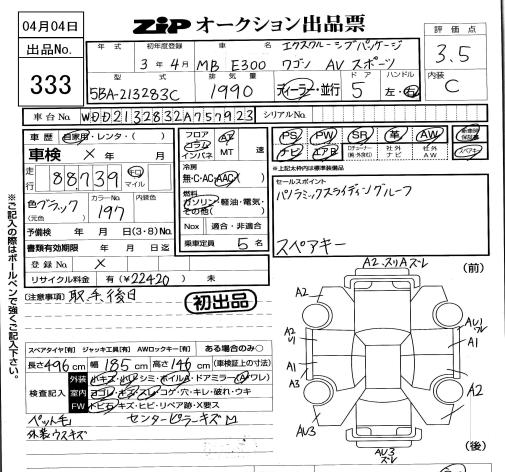 04月04日
ZIP オークション出品票
出品No.
333
評価点
3.5
内装
C
年式
初年度登録
車名
エクスクルーシブパッケージ
3年4月
MB E300 ワゴン AVスポーツ
型式
排気量
ドア
ハンドル
5BA-213283C
1990
ディーラー・並行
5
左・右
車台No.
WDD2132832A757923
シリアルNo.
車歴
自家用・レンタ・( )
車検 × 年 月
走行
88739
km
マイル
色 ブラック
(元色)
カラーNo.
197
内装色
予備検 年 月 日(3・8)No.
書類有効期限 年 月 日迄
登録No. ×
リサイクル料金 有(¥22420) 未
フロア
コラム
インパネ
AT
MT
速
冷房
無・C・AC・AAC
燃料
ガソリン・軽油・電気・
その他( )
Nox 適合・非適合
乗車定員 5 名
PS
PW
SR
革
AW
新車時
保証書
ナビ
エアB
社外
ナビ
社外
AW
スペアキー
※上記太枠内は標準装備品
セールスポイント
パノラミックスライディングルーフ
スペアキー
[注意事項] 取手後日
初出品
※ご記入の際はボールペンで強くご記入下さい。
スペアタイヤ[有] ジャッキ工具[有] AWロックキー[有] ある場合のみ○
長さ496cm 幅185cm 高さ146cm (車検証上の寸法)
検査記入
外装
小キズ・小凹・シミ・ホイルA・ドアミラー(A・ワレ)
室内
ヨゴレ・キズ・スレ・コゲ・穴・キレ・破れ・ウキ
FW
トビ石・キズ・ヒビ・リペア跡・X要ス
ペット毛 センターピラーキズM
外装ウスキズ
A2.スリAズレ
(前)
A2
A2
U1
A1
A3
AU3
AU1
ズレ
A1
A1
A2
AU3
ズレ
(後)